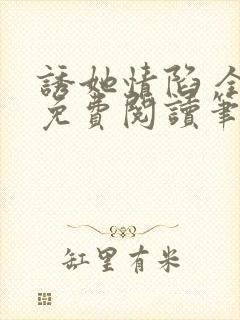 誘她情陷全
免費閱讀筆
缸里有米